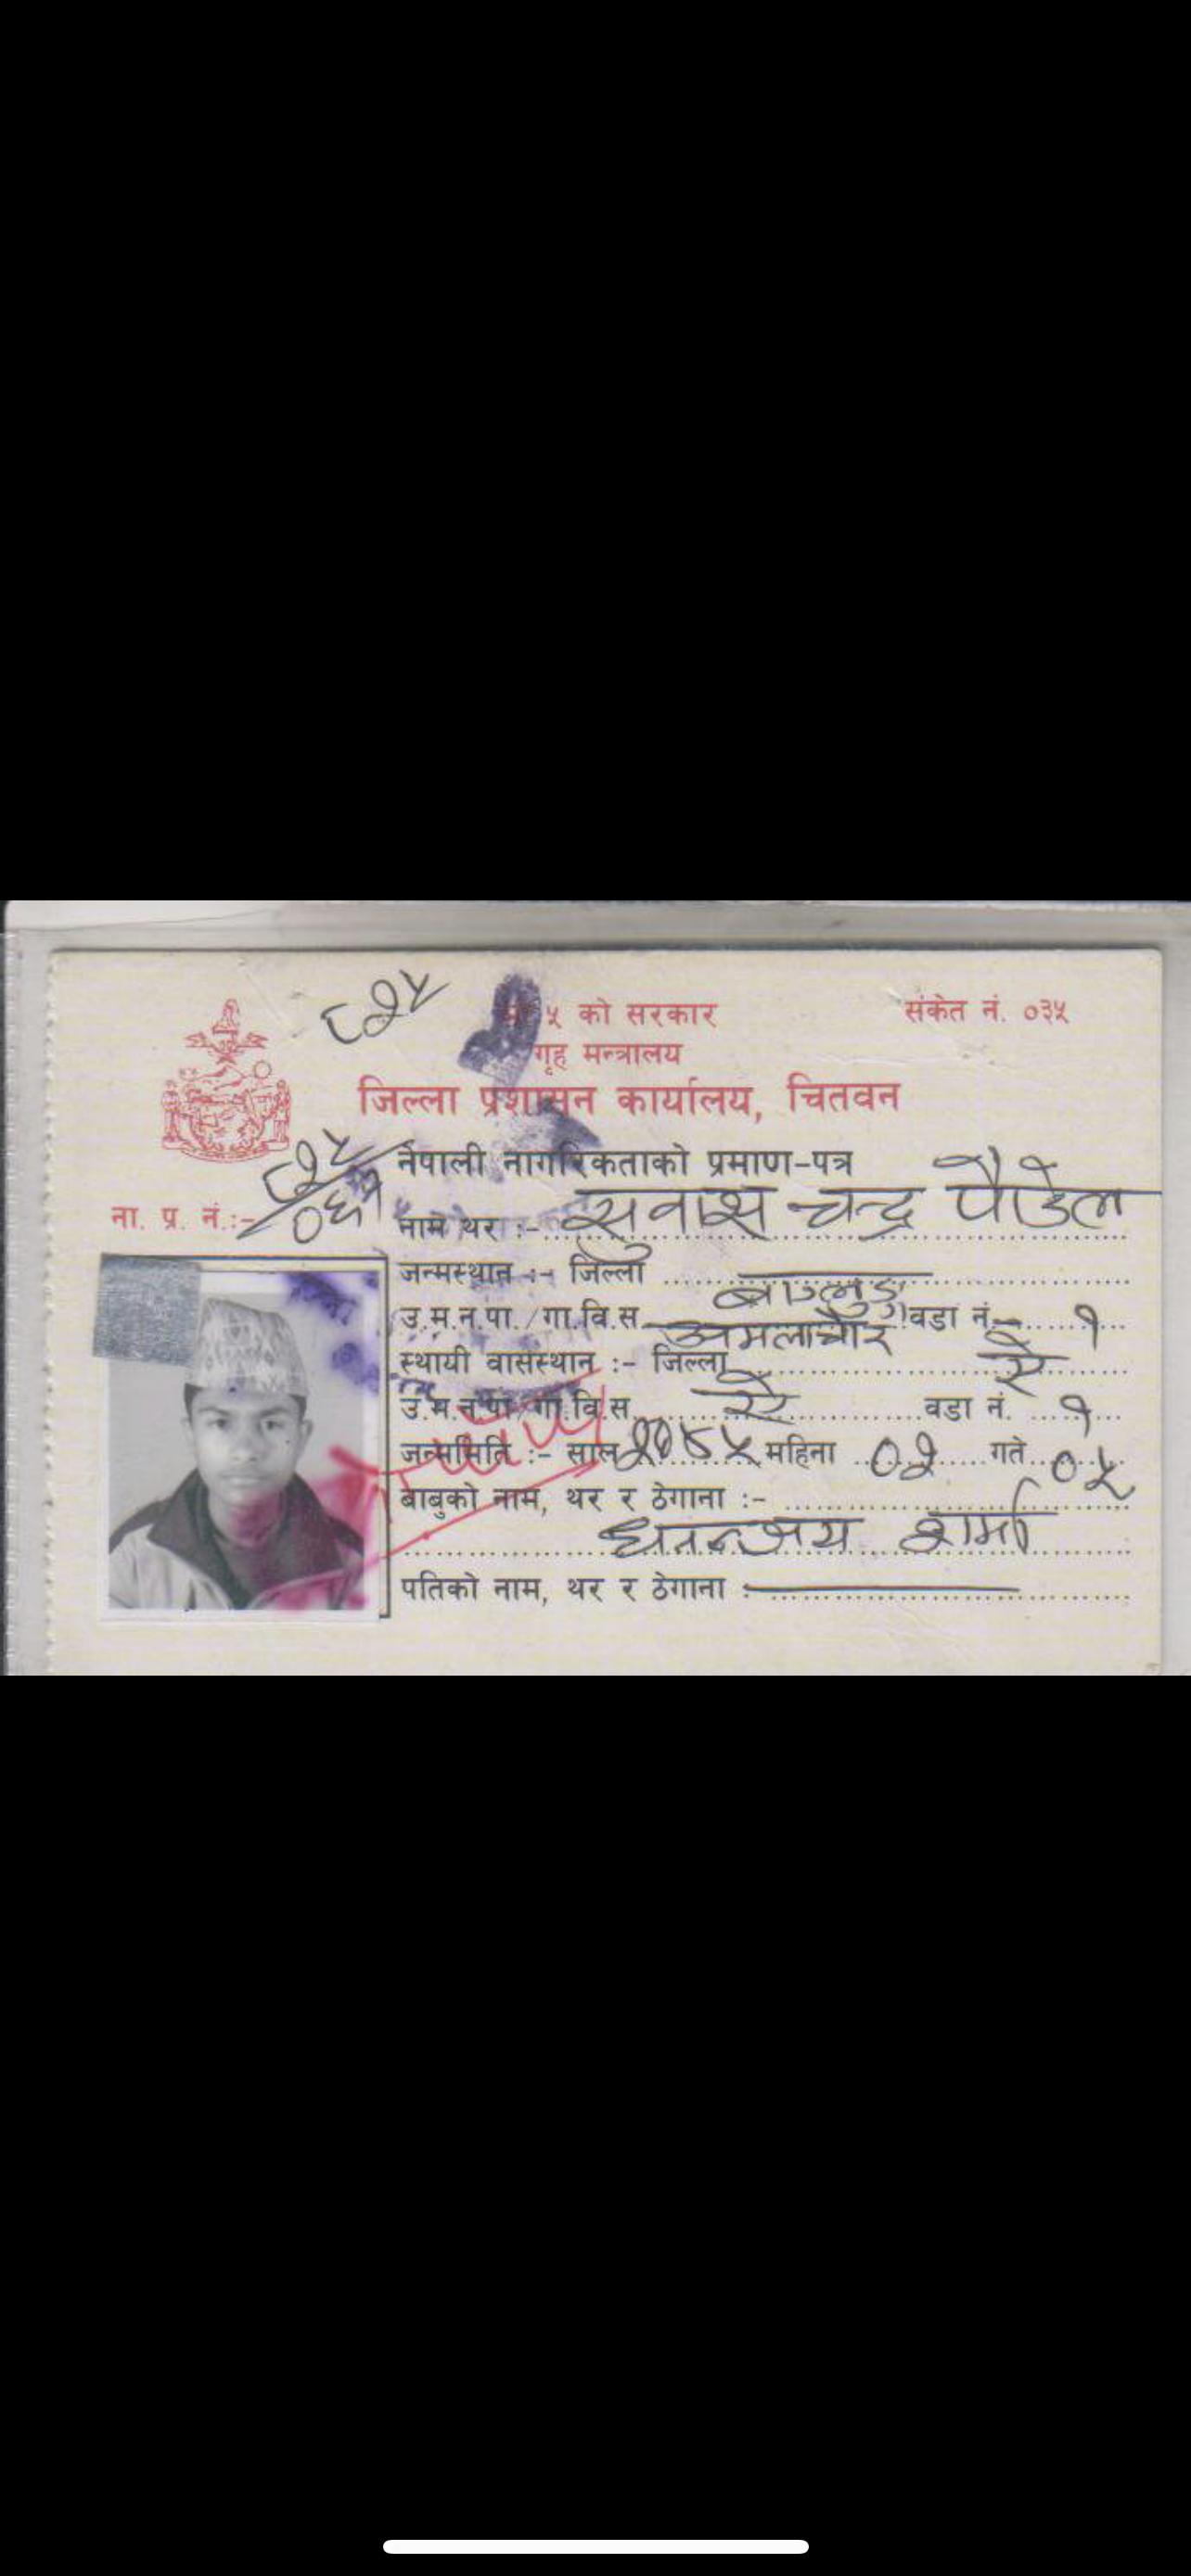 ८२५
५ को सरकार
संकेत नं. ०३५
गृह मन्त्रालय
जिल्ला प्रशासन कार्यालय, चितवन
नेपाली नागरिकताको प्रमाण-पत्र
ना. प्र. नं.:-
नाम थर :- सुवाश चन्द्र पौडेल
जन्मस्थान :- जिल्ला बाग्लुङ
उ.म.न.पा./गा.वि.स. अमलाचौर वडा नं. १
स्थायी वासस्थान :- जिल्ला ऐ
उ.म.न.पा./गा.वि.स. ऐ वडा नं. १
जन्ममिति :- साल महिना ०२ गते ०५
बाबुको नाम, थर र ठेगाना :-
धनन्जय शर्मा
पतिको नाम, थर र ठेगाना :